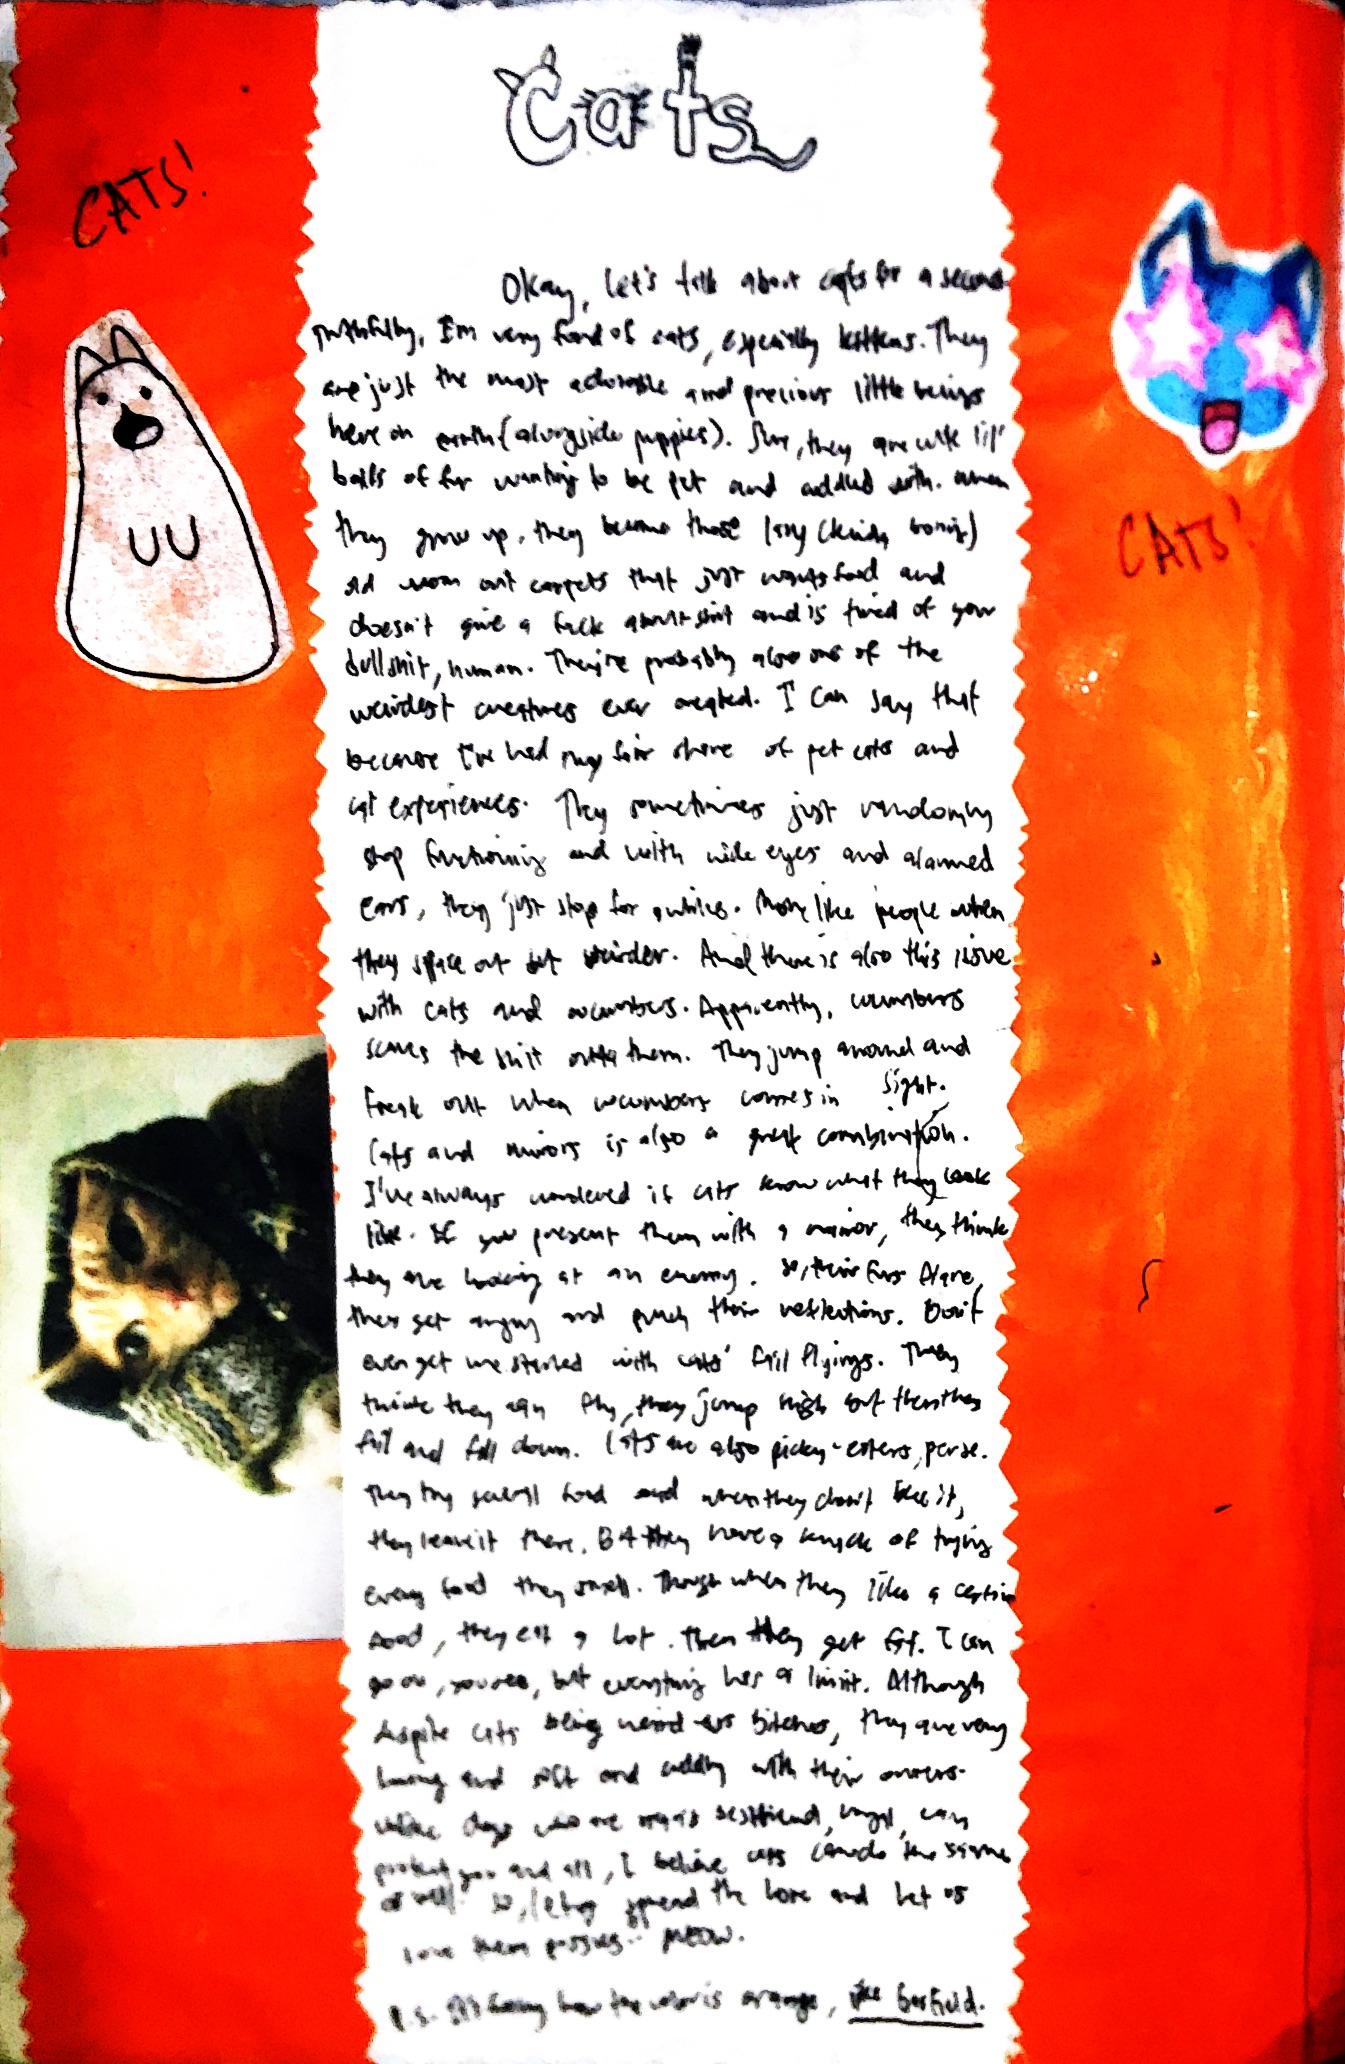 Cats
CATS!
CATS!
Okay, let's talk about cats for a second.
Truthfully, I'm very fond of cats, especially kittens. They
are just the most adorable and precious little beings
here on earth (alongside puppies). Sure, they are cute lil'
balls of fur wanting to be pet and cuddled with. When
they grow up, they become those lazy (kinda boring)
old worn out carpets that just wants food and
doesn't give a fuck about shit and is tired of your
bullshit, human. They're probably also one of the
weirdest creatures ever created. I can say that
because I've had my fair share of pet cats and
cat experiences. They sometimes just randomly
stop functioning and with wide eyes and alarmed
ears, they just stop for awhile. More like people when
they space out but weirder. And there is also this issue
with cats and cucumbers. Apparently, cucumbers
scares the shit outta them. They jump around and
freak out when cucumbers comes in sight.
Cats and mirrors is also a great combination.
I've always wondered if cats know what they look
like. If you present them with a mirror, they think
they are looking at an enemy. So, their furs flare,
they get angry and punch their reflections. Don't
even get me started with cats' fail flyings. They
think they can fly, they jump high but then they
fail and fall down. Cats are also picky-eaters, per se.
They try several food and when they don't like it,
they leave it there. But they have a knack of trying
every food they smell. Though when they like a certain
food, they eat a lot. Then they get fat. I can
go on, you see, but everything has a limit. Although
despite cats being weird ass bitches, they are very
loving and soft and cuddly with their owners.
Unlike dogs who are man's bestfriend, loyal, can
protect you and all, I believe cats can do the same
as well. So, let us spread the love and let us
love them pussies. MEOW.
P.S. It's funny how the color is orange, like Garfield.